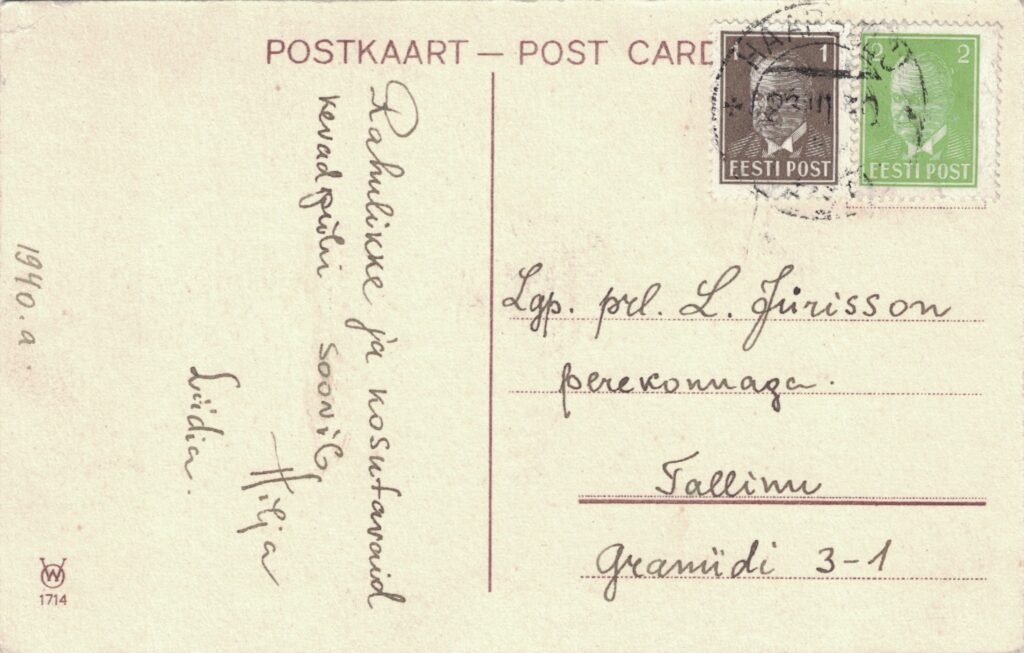 POSTKAART — POST CARD
1
EESTI POST
2
EESTI POST
23 III 40
Rahulikke ja kosutavaid
kevadpühi soovib
Hilja
Liidia.
1940. a.
Lgp. prl. L. Jürisson
perekonnaga.
Tallinn
Graniidi 3-1
W
1714